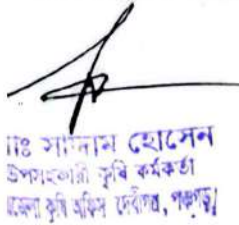 মোঃ সাদ্দাম হোসেন
উপসহকারী কৃষি কর্মকর্তা
উপজেলা কৃষি অফিস দেবীগঞ্জ, পঞ্চগড়।